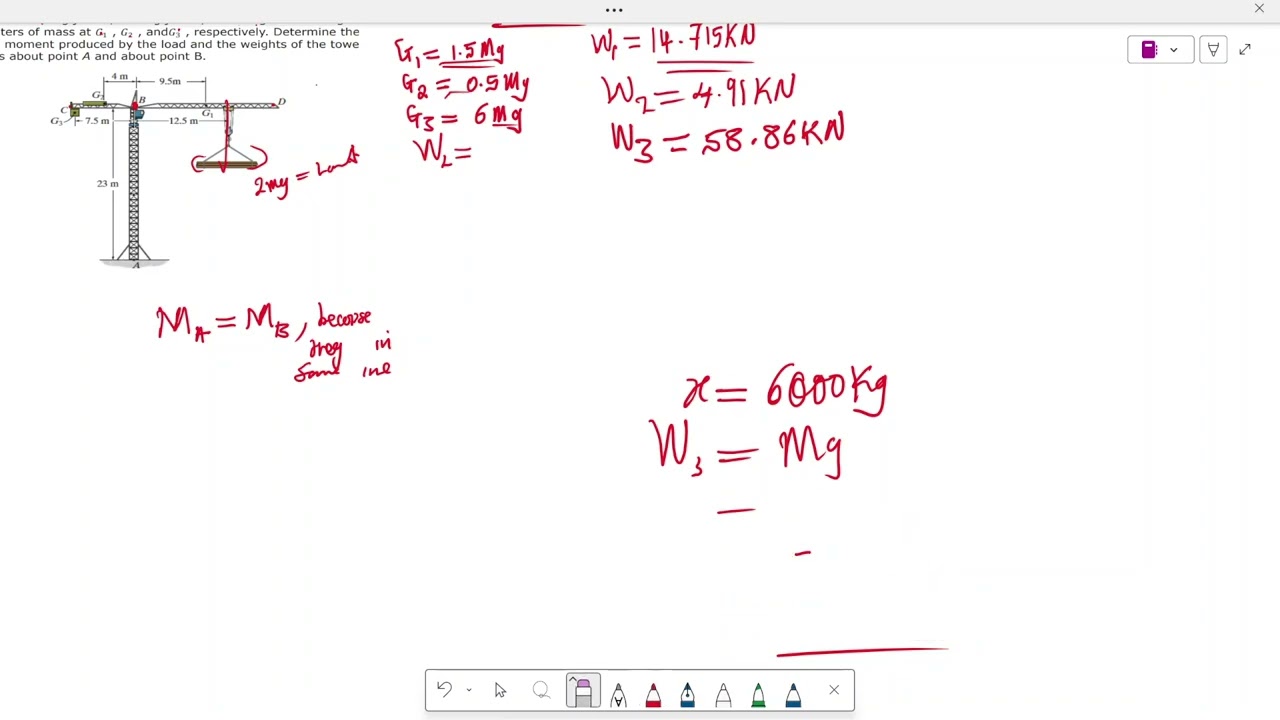 ters of mass at G₁ , G₂ , andG₃ , respectively. Determine the
moment produced by the load and the weights of the towe
s about point A and about point B.
4 m
9.5m
G₂
B
D
C
G₁
G₃
7.5 m
12.5 m
23 m
A
2mg = Load
G₁ = 1.5 Mg
G₂ = 0.5 Mg
G₃ = 6 Mg
W₂ =
W₁ = 14.715KN
W₂ = 4.91KN
W₃ = 58.86KN
M_A = M_B, because
in
Same
x = 6000Kg
W₃ = Mg
=